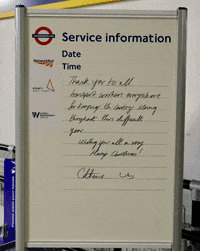 Service information
Date
Time
Thank you to all
transport workers everywhere
for keeping the country moving
throughout this difficult
year
wishing you all a very
Happy Christmas!